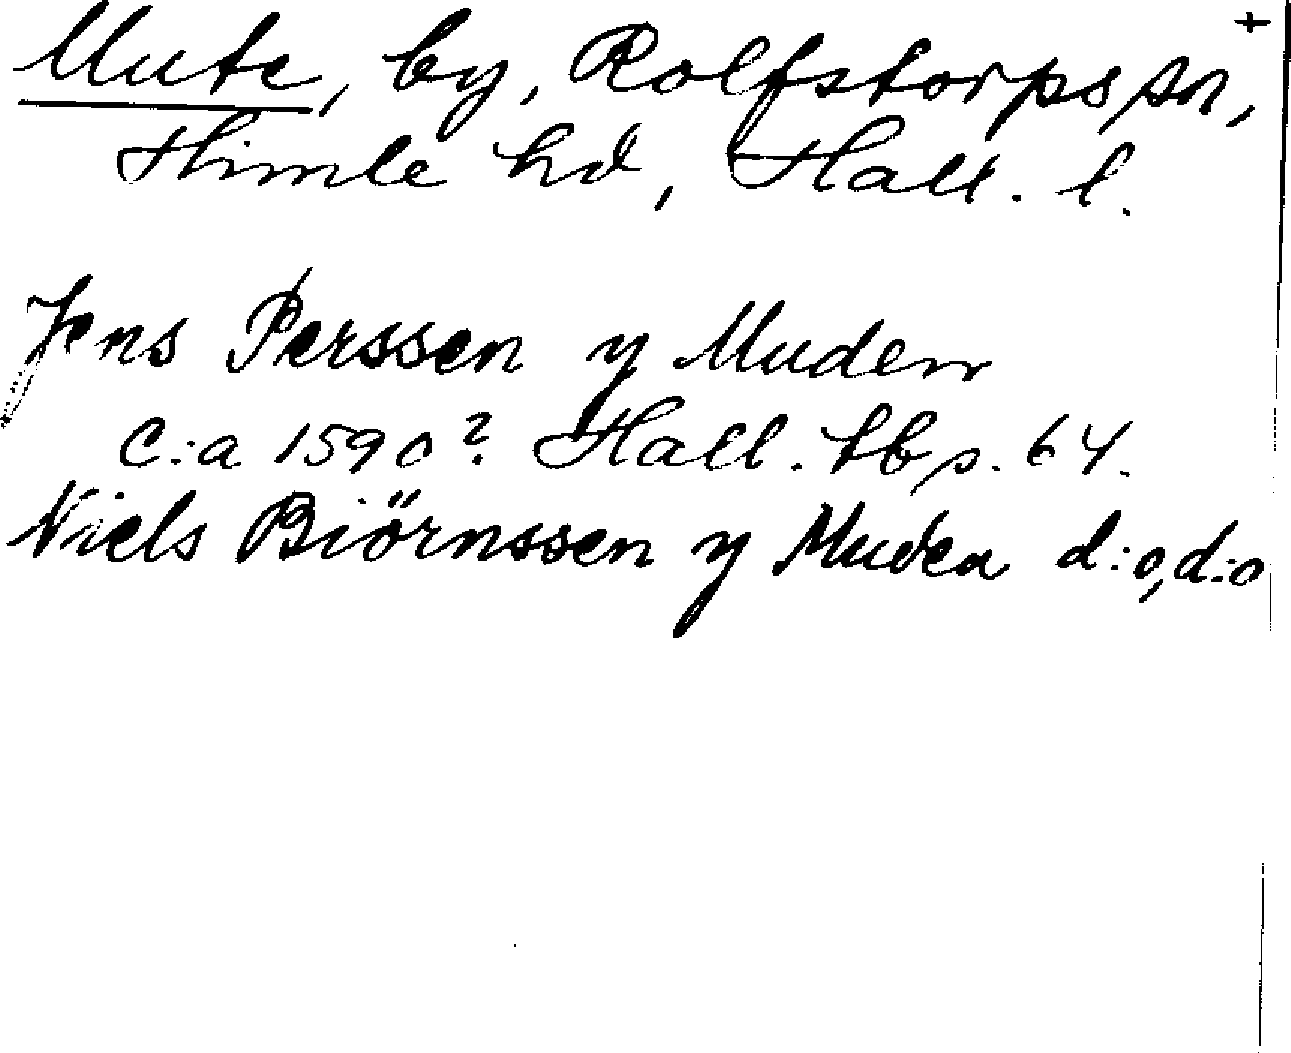 Mute, by, Rolfstorps sn, +
Himle hd, Hall. l.
Jens Perssen y Muden
C:a 1590? Hall. tb s. 64.
Niels Biörnssen y Muden d:o, d:o